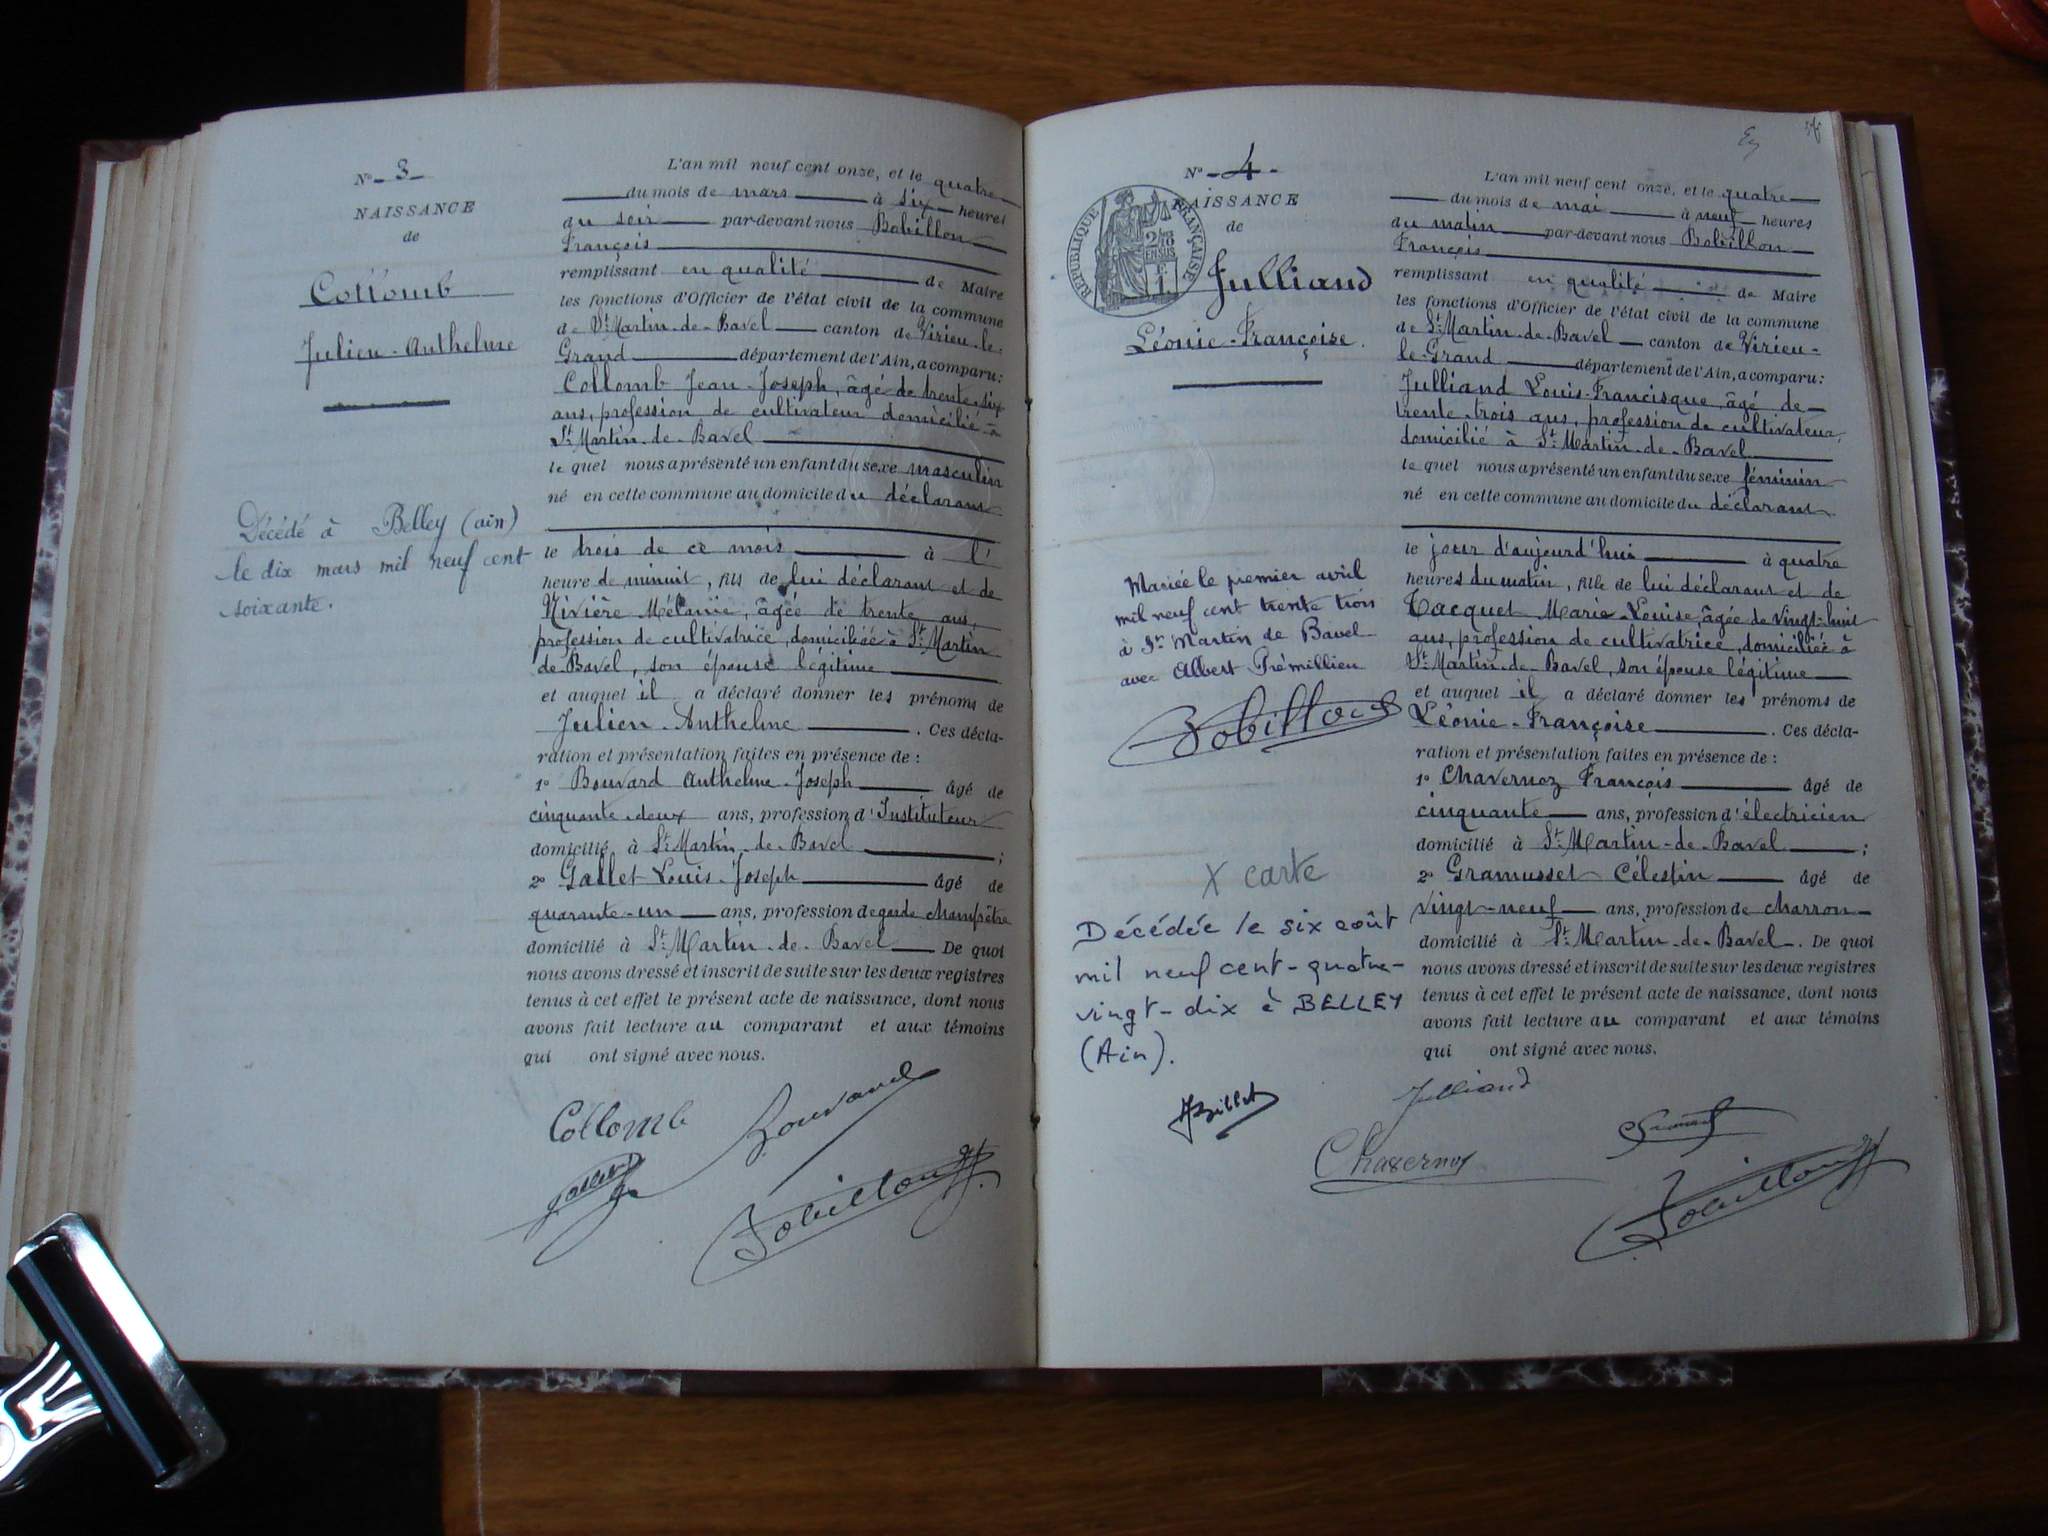 N° 3
NAISSANCE
de
Collomb
Julien-Anthelme
Décédé à Belley (ain)
le dix mars mil neuf cent
soixante.
L'an mil neuf cent onze, et le quatre
du mois de mars à six heures
du soir par-devant nous Bobillon
François
remplissant en qualité de Maire
les fonctions d'Officier de l'état civil de la commune
de St Martin-de-Bavel canton de Virieu-le-
Grand département de l'Ain, a comparu:
Collomb Jean-Joseph, âgé de trente-six
ans, profession de cultivateur domicilié à
St Martin-de-Bavel
le quel nous a présenté un enfant du sexe masculin
né en cette commune au domicile du déclarant
le trois de ce mois à l'
heure de minuit, fils de lui déclarant et de
Rivière Mélanie, âgée de trente ans,
profession de cultivatrice, domiciliée à St Martin
de Bavel, son épouse légitime
et auquel il a déclaré donner les prénoms de
Julien-Anthelme . Ces décla-
ration et présentation faites en présence de :
1° Bouvard Anthelme-Joseph âgé de
cinquante-deux ans, profession d'Instituteur
domicilié à St Martin-de-Bavel ;
2° Gallet Louis-Joseph âgé de
quarante-un ans, profession de garde champêtre
domicilié à St Martin-de-Bavel De quoi
nous avons dressé et inscrit de suite sur les deux registres
tenus à cet effet le présent acte de naissance, dont nous
avons fait lecture au comparant et aux témoins
qui ont signé avec nous.
Collomb Bouvard
Gallet Bobillon
N° 4
NAISSANCE
de
RÉPUBLIQUE FRANÇAISE
2/10
EN SUS
1 F.
Julliand
Léonie-Françoise.
Mariée le premier avril
mil neuf cent trente trois
à St Martin de Bavel
avec Albert Prémillieu
Bobillon
X carte
Décédée le six août
mil neuf cent-quatre-
vingt-dix à BELLEY
(Ain).
L'an mil neuf cent onze, et le quatre
du mois de mai à neuf heures
du matin par-devant nous Bobillon
François
remplissant en qualité de Maire
les fonctions d'Officier de l'état civil de la commune
de St Martin-de-Bavel canton de Virieu-
le-Grand département de l'Ain, a comparu:
Julliand Louis-Francisque, âgé de
trente-trois ans, profession de cultivateur,
domicilié à St Martin-de-Bavel
le quel nous a présenté un enfant du sexe féminin
né en cette commune au domicile du déclarant
le jour d'aujourd'hui à quatre
heures du matin, fille de lui déclarant et de
Tacquet Marie-Louise, âgée de vingt-huit
ans, profession de cultivatrice, domiciliée à
St Martin-de-Bavel, son épouse légitime
et auquel il a déclaré donner les prénoms de
Léonie-Françoise . Ces décla-
ration et présentation faites en présence de :
1° Chavernoz François âgé de
cinquante ans, profession d'électricien
domicilié à St Martin-de-Bavel ;
2° Gramusset Célestin âgé de
vingt-neuf ans, profession de charron
domicilié à St Martin-de-Bavel. De quoi
nous avons dressé et inscrit de suite sur les deux registres
tenus à cet effet le présent acte de naissance, dont nous
avons fait lecture au comparant et aux témoins
qui ont signé avec nous.
Julliand
Chavernoz
Bobillon